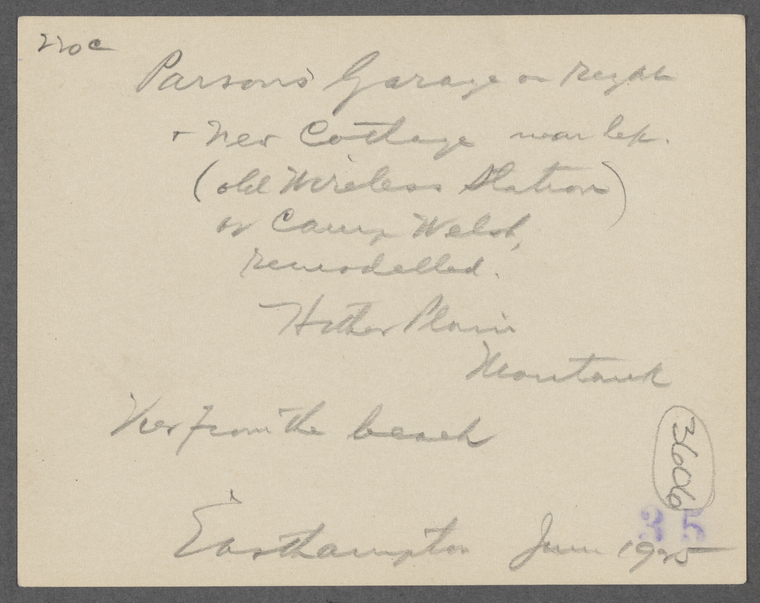 220c
Parsons' Garage on right
+ her Cottage near left.
(old Wireless Station)
or Camp Welsh,
remodelled.
Hither Plain
Montauk
View from the beach
3606
Easthampton June 1925